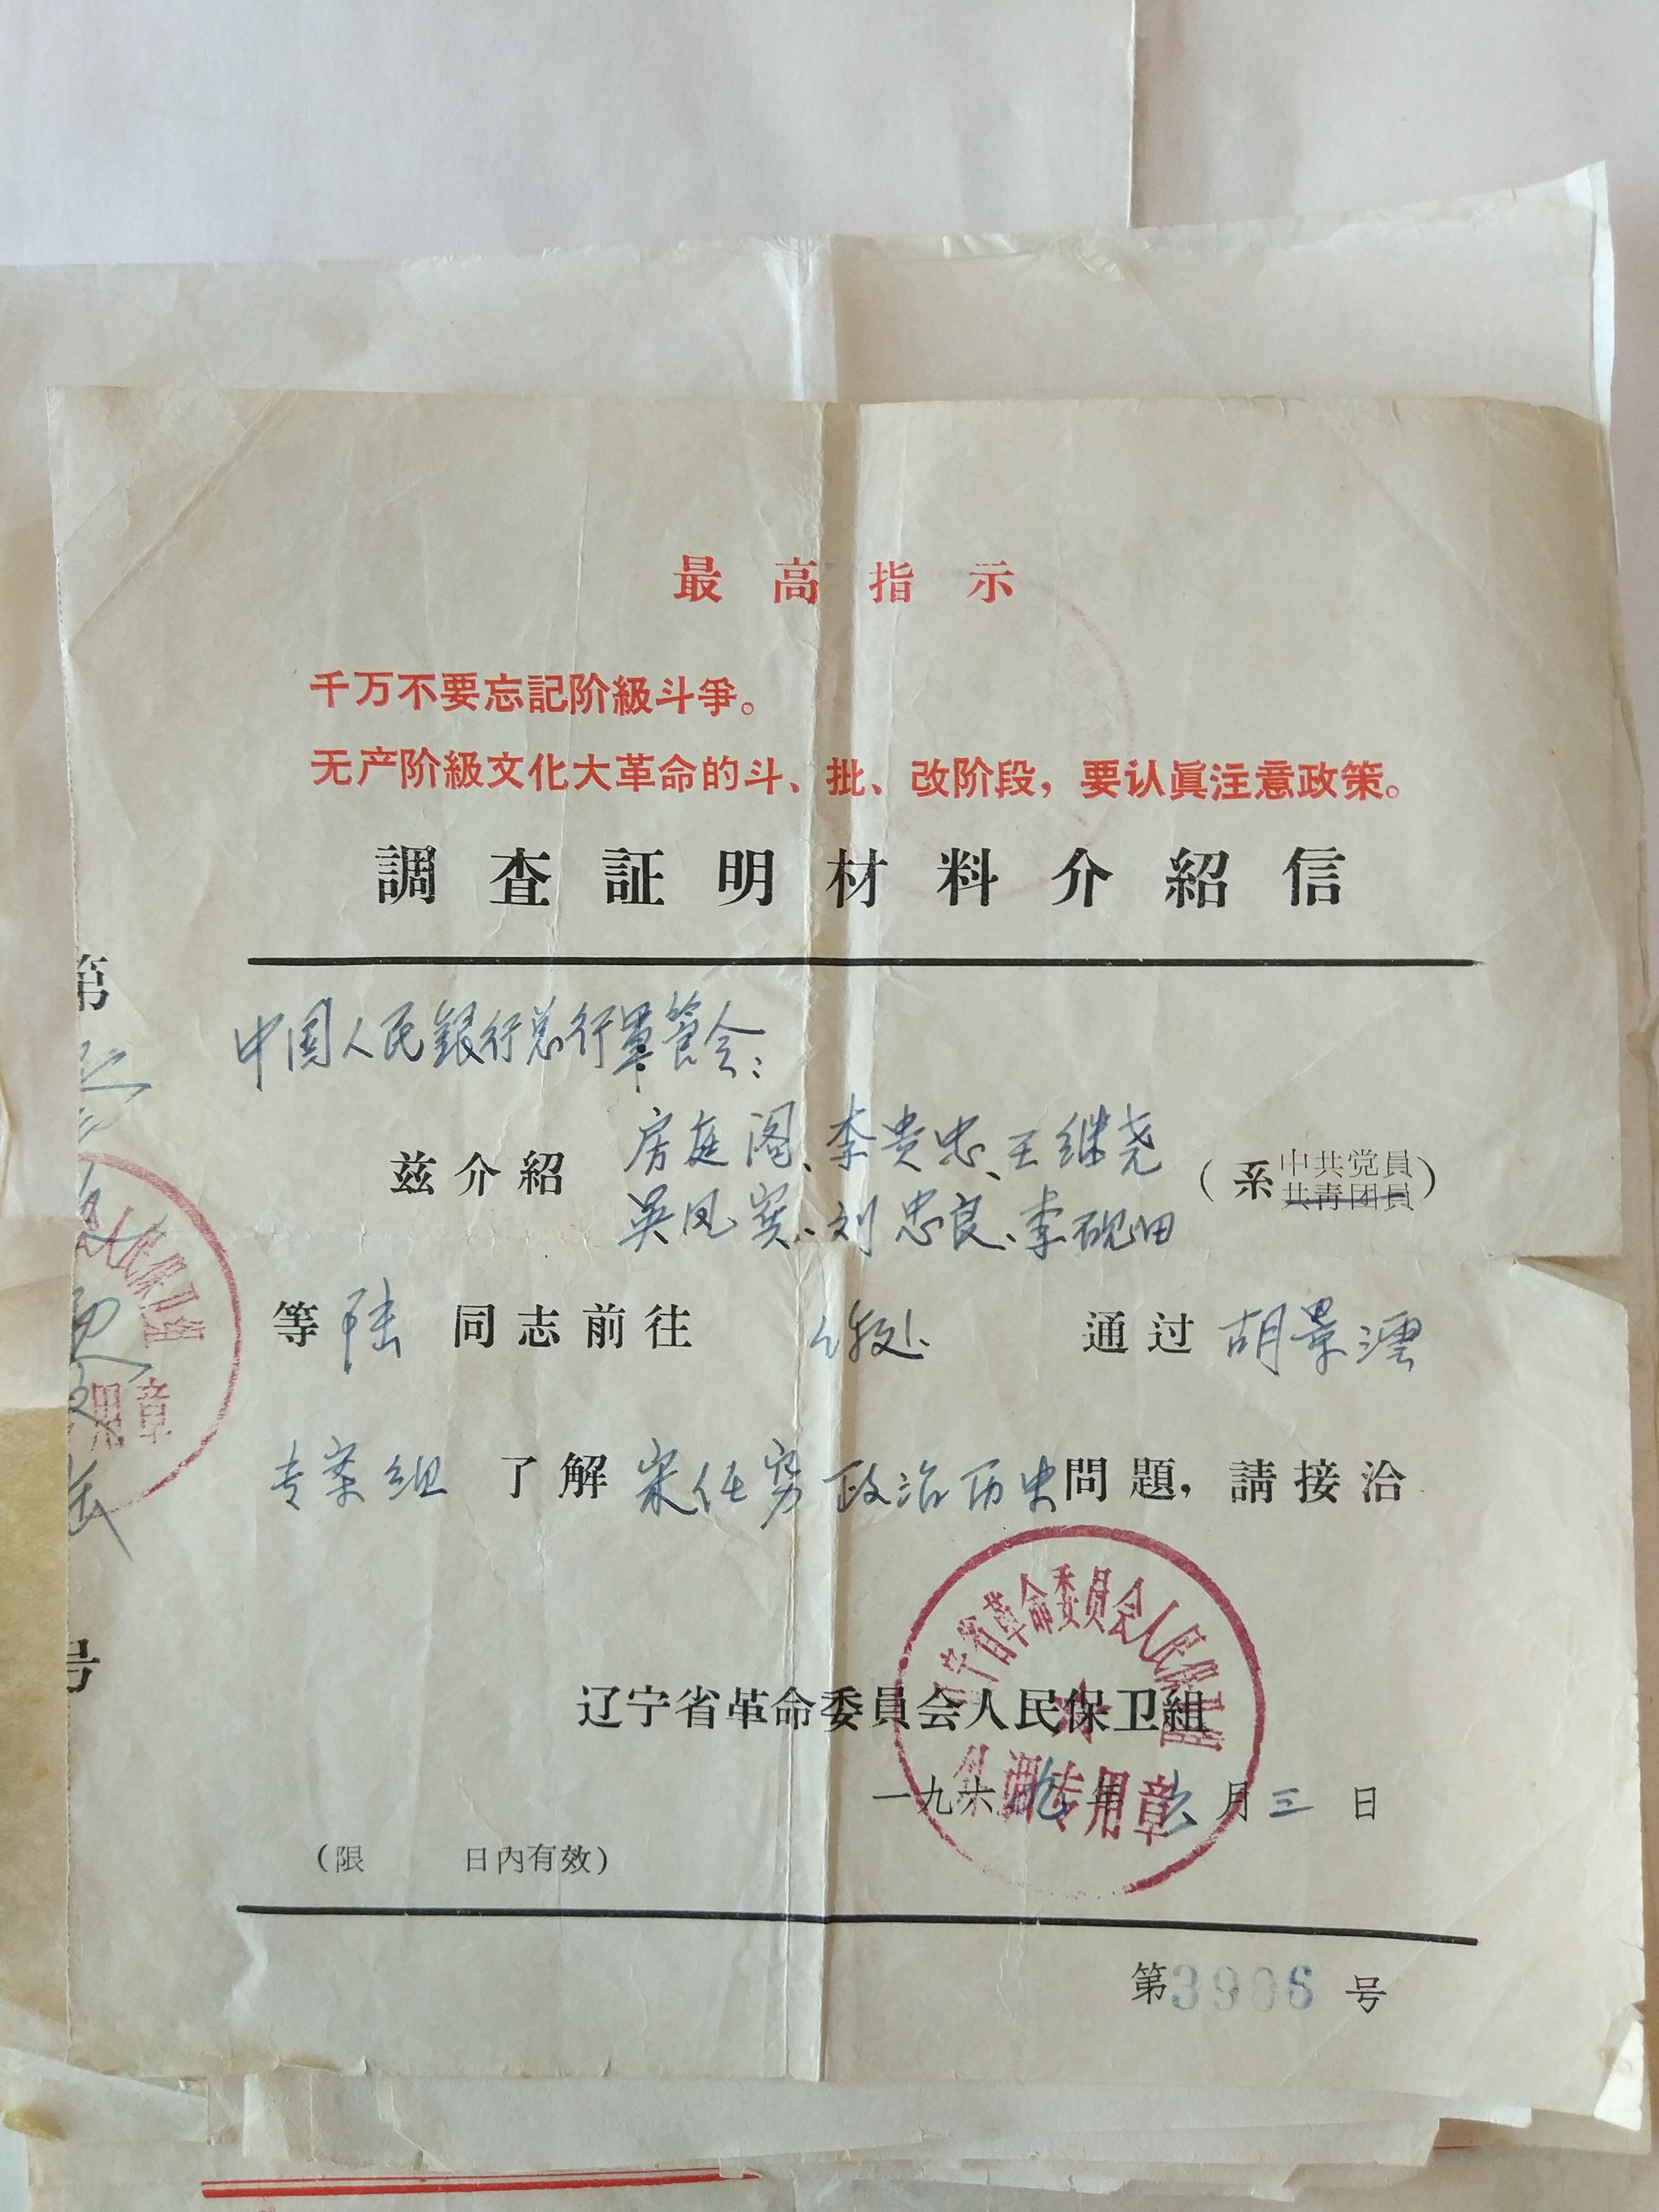 最高指示
千万不要忘記阶級斗爭。
无产阶級文化大革命的斗、批、改阶段，要认眞注意政策。
調查証明材料介紹信
中国人民銀行总行軍管会：
茲介紹
房庭阁、李贵忠、王继尧
吴凤寳、刘忠良、李砚田
（系中共党員
共靑团員）
等陆同志前往 你处 通过胡景澐
专案组了解宋任穷政治历史問題，請接洽
辽宁省革命委員会人民保卫組
一九六九年六月三日
（限 日内有效）
第3906号
第
号
辽宁省革命委员会人民保卫组
外调专用章
人民保卫组
用章